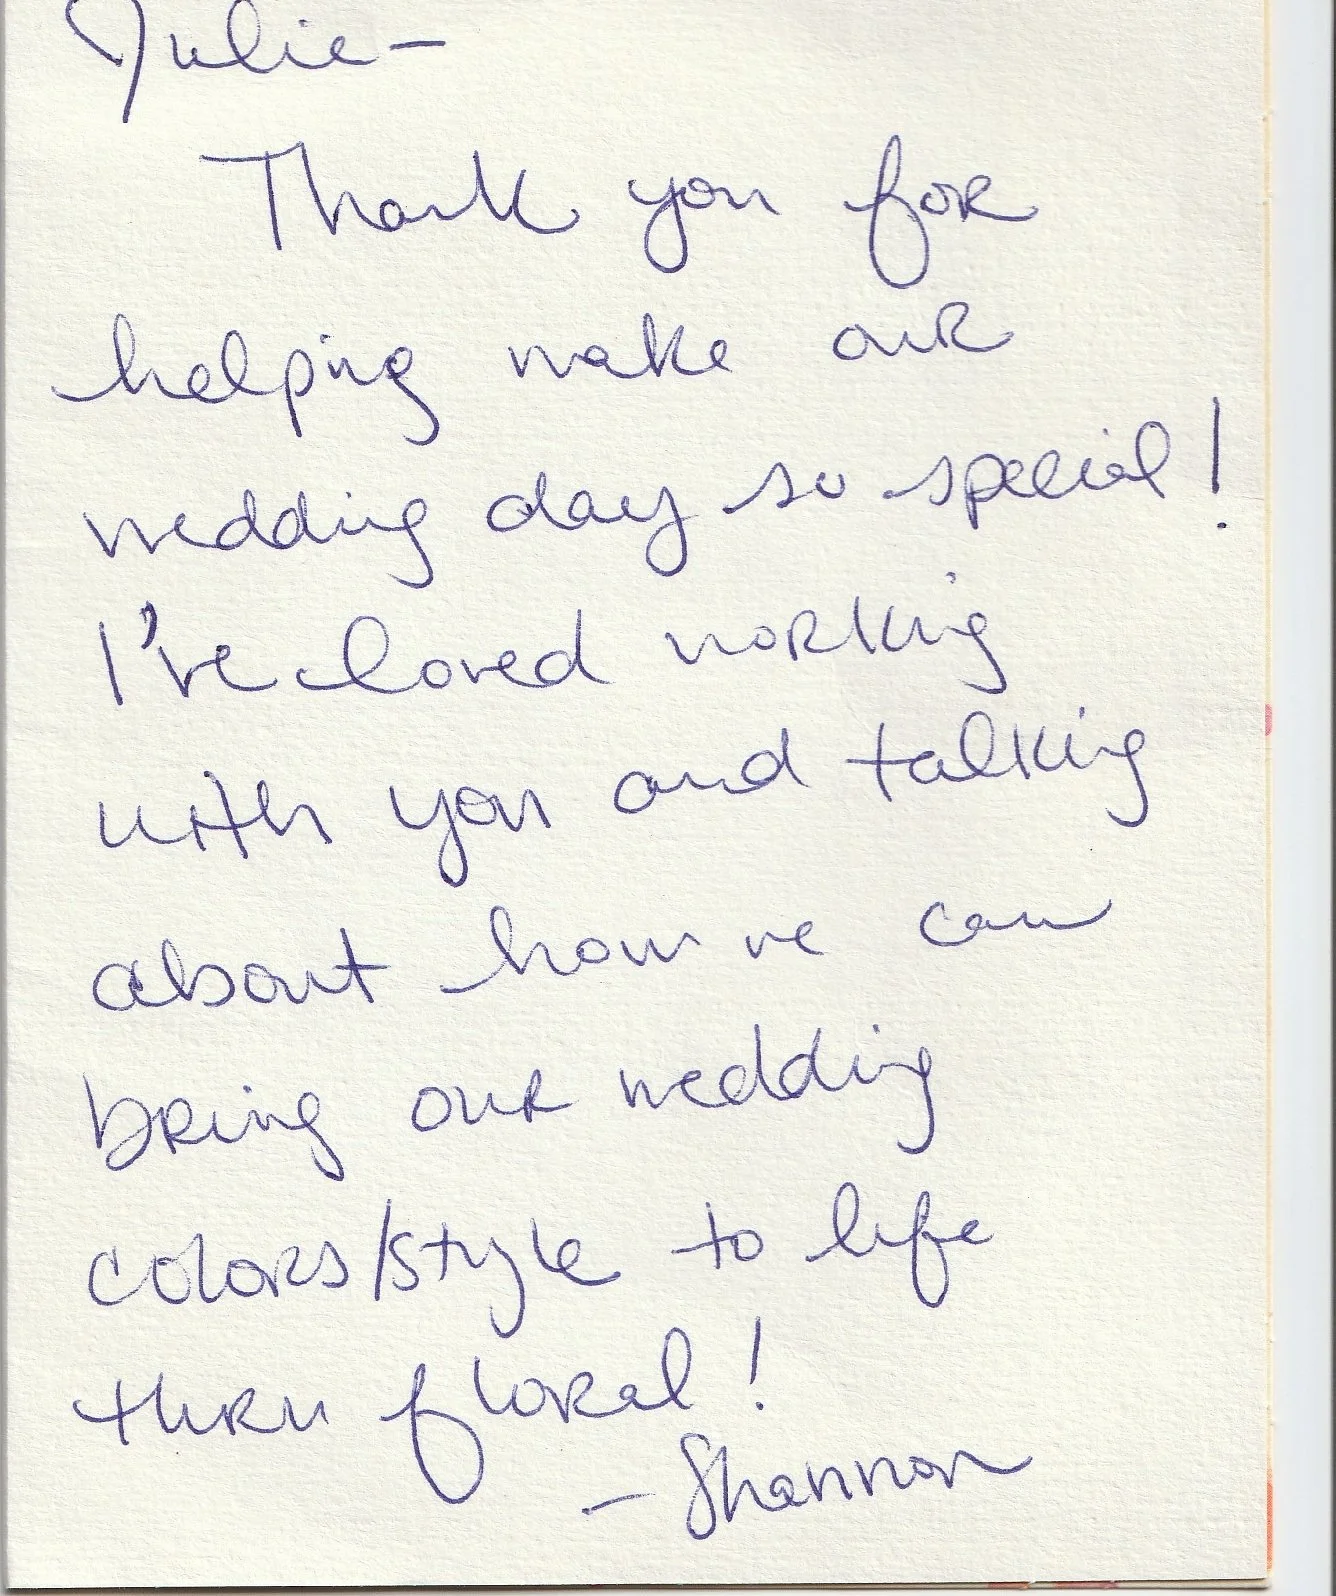 Julie-
Thank you for
helping make our
wedding day so special!
I've loved working
with you and talking
about how we can
bring our wedding
colors/style to life
thru floral!
- Shannon